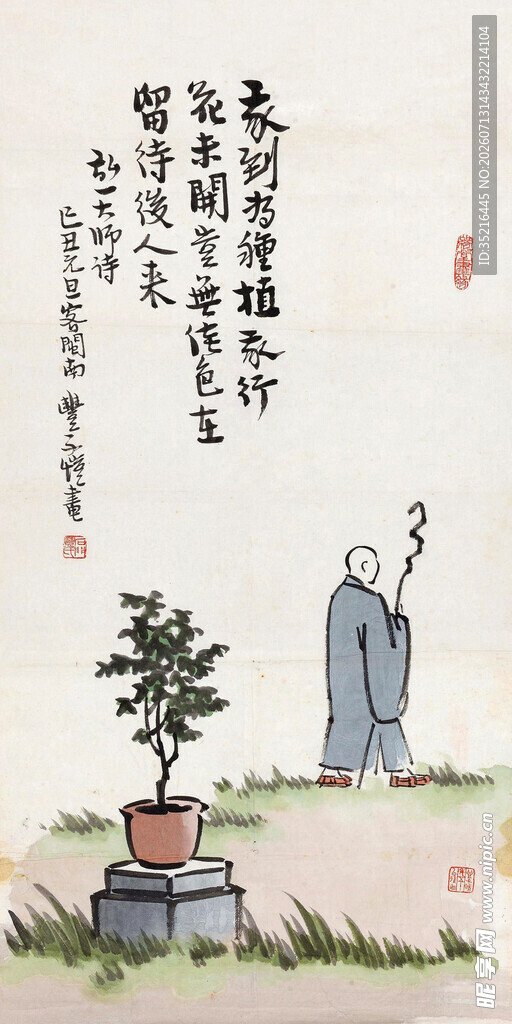 我到为種植我行
花未開豈無佳色在
留待後人来
弘一大师诗
己丑元旦客閩南 豐子愷畫
ID:35216445 NO:20260713143432214104
昵享网 www.nipic.cn